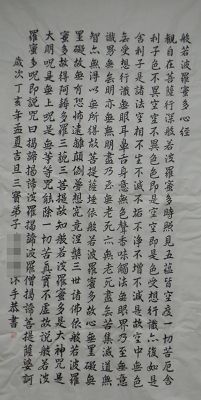 般若波羅蜜多心經
觀自在菩薩行深般若波羅蜜多時照見五蘊皆空度一切苦厄舍
利子色不異空空不異色色即是空空即是色受想行識亦復如是
舍利子是諸法空相不生不滅不垢不淨不增不減是故空中無色
無受想行識無眼耳鼻舌身意無色聲香味觸法無眼界乃至無意
識界無無明亦無無明盡乃至無老死亦無老死盡無苦集滅道無
智亦無得以無所得故菩提薩埵依般若波羅蜜多故心無罣礙無
罣礙故無有恐怖遠離顛倒夢想究竟涅槃三世諸佛依般若波羅
蜜多故得阿耨多羅三藐三菩提故知般若波羅蜜多是大神呪是
大明呪是無上呪是無等等呪能除一切苦真實不虛故說般若波
羅蜜多呪即說呪曰揭諦揭諦波羅揭諦波羅僧揭諦菩提薩婆訶
歲次丁亥年孟夏吉旦三寶弟子 沐手恭書